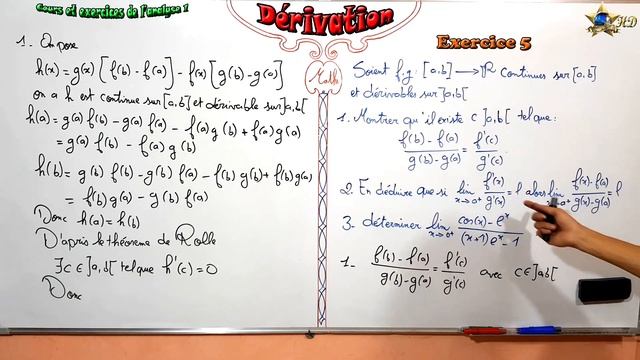 Cours et exercices de l'analyse 1
Dérivation
Exercice 5
1. On pose
h(x) = g(x) [f(b) - f(a)] - f(x) [g(b) - g(a)]
on a h est continue sur [a,b] et dérivable sur ]a,b[
h(a) = g(a) f(b) - g(a) f(a) - f(a) g(b) + f(a) g(a)
= g(a) f(b) - f(a) g(b)
h(b) = g(b) f(b) - g(b) f(a) - f(b) g(b) + f(b) g(a)
= f(b) g(a) - g(b) f(a)
Donc h(a) = h(b)
D'après le théorème de Rolle
∃ c ∈ ]a,b[ tel que h'(c) = 0
Donc
Maths
Soient f.g : [a,b] → ℝ continues sur [a,b]
et dérivables sur ]a,b[
1. Montrer qu'il existe c ]a,b[ tel que :
f(b) - f(a) / g(b) - g(a) = f'(c) / g'(c)
2. En déduire que si lim x→0+ f'(x) / g'(x) = l alors lim x→0+ f(x) - f(a) / g(x) - g(a) = l
3. déterminer lim x→0+ cos(x) - e^x / (x+1) e^x - 1
1- f(b) - f(a) / g(b) - g(a) = f'(c) / g'(c) avec c ∈ ]a b[